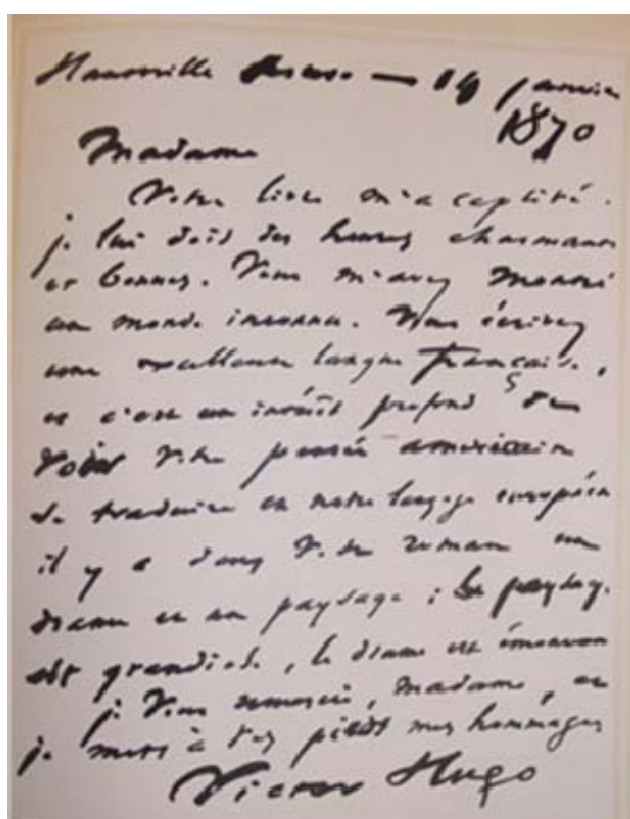 Hauteville House — janvier
1870
Madame
Votre livre m'a captivé.
je lui dois des heures charmantes
et bonnes. Vous m'avez montré
un monde inconnu. Vous écrivez
une excellente langue française,
et c'est un intérêt profond de
voir votre pensée américaine
se traduire en notre langage européen
il y a dans votre roman un
drame et un paysage ; le paysage
est grandiose, le drame est émouvant
je vous remercie, Madame, et
je mets à vos pieds mes hommages
Victor Hugo